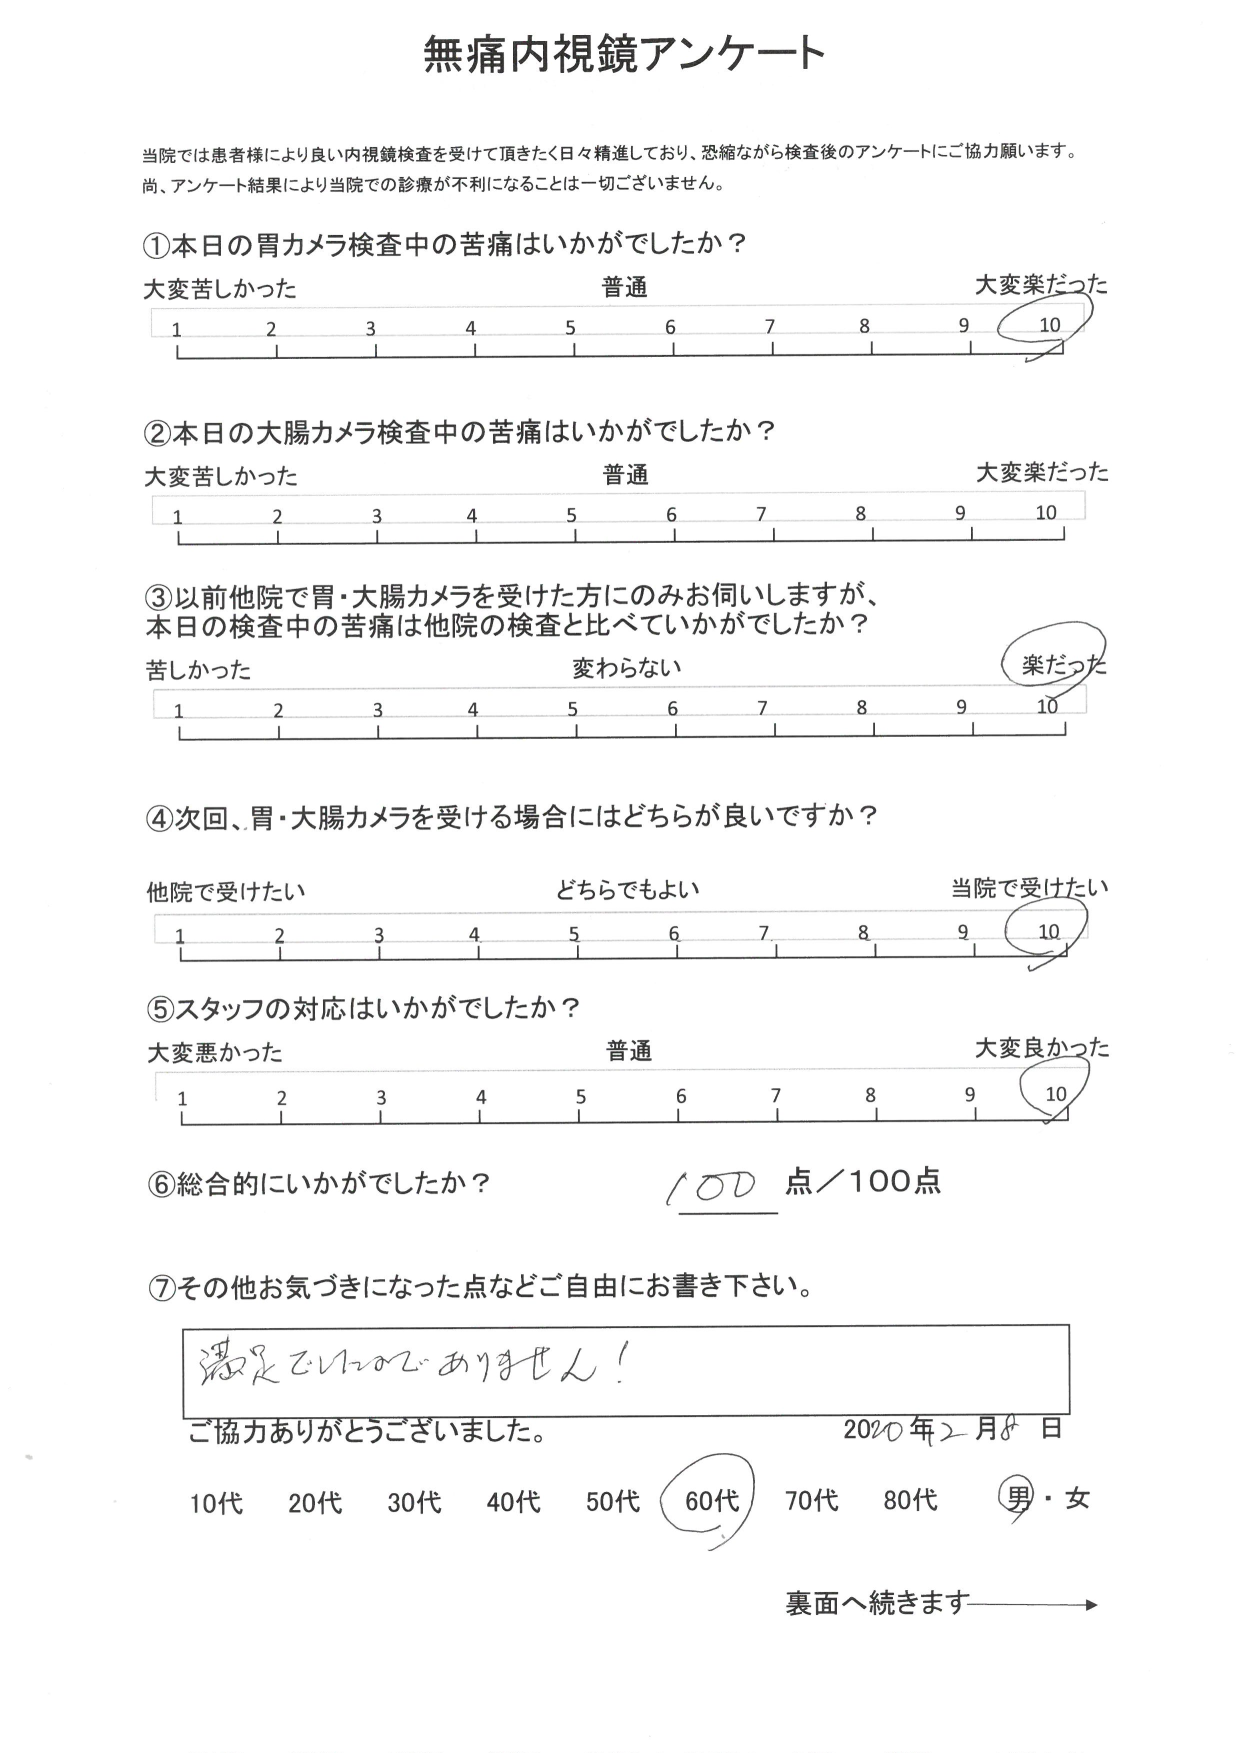 無痛内視鏡アンケート
当院では患者様により良い内視鏡検査を受けて頂きたく日々精進しており、恐縮ながら検査後のアンケートにご協力願います。
尚、アンケート結果により当院での診療が不利になることは一切ございません。
①本日の胃カメラ検査中の苦痛はいかがでしたか？
大変苦しかった 普通 大変楽だった
1 2 3 4 5 6 7 8 9 10
②本日の大腸カメラ検査中の苦痛はいかがでしたか？
大変苦しかった 普通 大変楽だった
1 2 3 4 5 6 7 8 9 10
③以前他院で胃・大腸カメラを受けた方にのみお伺いしますが、
本日の検査中の苦痛は他院の検査と比べていかがでしたか？
苦しかった 変わらない 楽だった
1 2 3 4 5 6 7 8 9 10
④次回、胃・大腸カメラを受ける場合にはどちらが良いですか？
他院で受けたい どちらでもよい 当院で受けたい
1 2 3 4 5 6 7 8 9 10
⑤スタッフの対応はいかがでしたか？
大変悪かった 普通 大変良かった
1 2 3 4 5 6 7 8 9 10
⑥総合的にいかがでしたか？ 100 点／100点
⑦その他お気づきになった点などご自由にお書き下さい。
満足でしたのでありません！
ご協力ありがとうございました。 2020年2月8日
10代 20代 30代 40代 50代 60代 70代 80代 男・女
裏面へ続きます